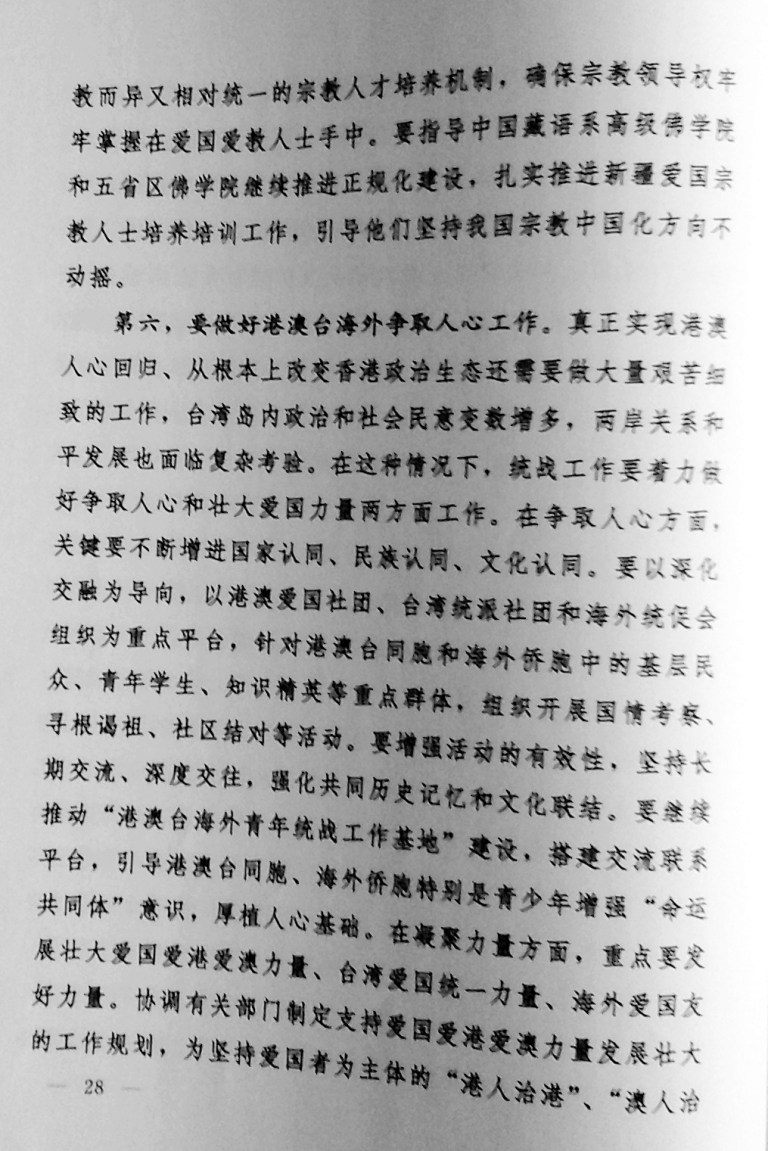 教而异又相对统一的宗教人才培养机制，确保宗教领导权牢
牢掌握在爱国爱教人士手中。要指导中国藏语系高级佛学院
和五省区佛学院继续推进正规化建设，扎实推进新疆爱国宗
教人士培养培训工作，引导他们坚持我国宗教中国化方向不
动摇。
第六，要做好港澳台海外争取人心工作。真正实现港澳
人心回归、从根本上改变香港政治生态还需要做大量艰苦细
致的工作，台湾岛内政治和社会民意变数增多，两岸关系和
平发展也面临复杂考验。在这种情况下，统战工作要着力做
好争取人心和壮大爱国力量两方面工作。在争取人心方面，
关键要不断增进国家认同、民族认同、文化认同。要以深化
交融为导向，以港澳爱国社团、台湾统派社团和海外统促会
组织为重点平台，针对港澳台同胞和海外侨胞中的基层民
众、青年学生、知识精英等重点群体，组织开展国情考察、
寻根谒祖、社区结对等活动。要增强活动的有效性，坚持长
期交流、深度交往，强化共同历史记忆和文化联结。要继续
推动“港澳台海外青年统战工作基地”建设，搭建交流联系
平台，引导港澳台同胞、海外侨胞特别是青少年增强“命运
共同体”意识，厚植人心基础。在凝聚力量方面，重点要发
展壮大爱国爱港爱澳力量、台湾爱国统一力量、海外爱国友
好力量。协调有关部门制定支持爱国爱港爱澳力量发展壮大
的工作规划，为坚持爱国者为主体的“港人治港”、“澳人治
— 28 —